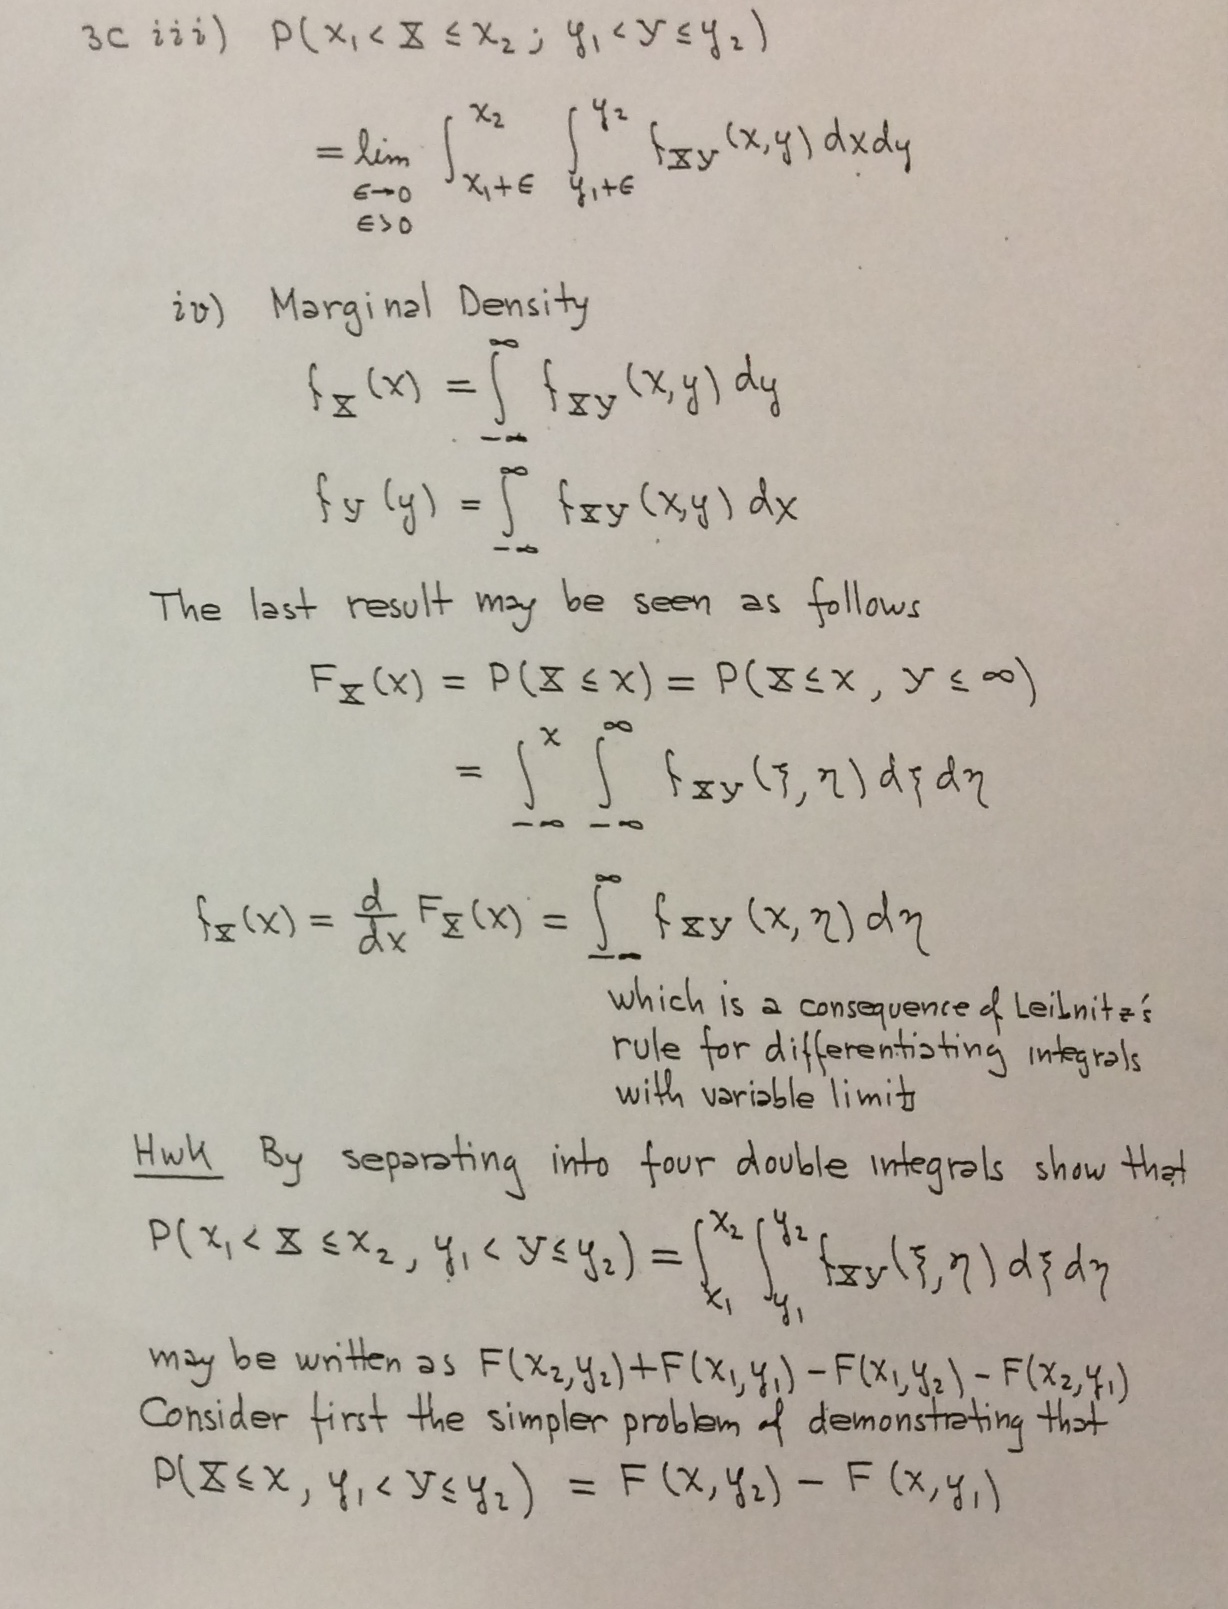 3c iii) P(x₁ < X ≤ x₂ ; y₁ < Y ≤ y₂)
= lim_{ϵ→0, ϵ>0} ∫_{x₁+ϵ}^{x₂} ∫_{y₁+ϵ}^{y₂} f_{XY}(x,y) dx dy
iv) Marginal Density
f_X(x) = ∫_{-∞}^{∞} f_{XY}(x,y) dy
f_Y(y) = ∫_{-∞}^{∞} f_{XY}(x,y) dx
The last result may be seen as follows
F_X(x) = P(X ≤ x) = P(X ≤ x, Y ≤ ∞)
= ∫_{-∞}^{x} ∫_{-∞}^{∞} f_{XY}(ξ, η) dξ dη
f_X(x) = d/dx F_X(x) = ∫_{-∞}^{∞} f_{XY}(x, η) dη
which is a consequence of Leibnitz's
rule for differentiating integrals
with variable limits
Hwk By separating into four double integrals show that
P(x₁ < X ≤ x₂, y₁ < Y ≤ y₂) = ∫_{x₁}^{x₂} ∫_{y₁}^{y₂} f_{XY}(ξ, η) dξ dη
may be written as F(x₂,y₂)+F(x₁,y₁) - F(x₁,y₂) - F(x₂,y₁)
Consider first the simpler problem of demonstrating that
P(X ≤ x, y₁ < Y ≤ y₂) = F(x,y₂) - F(x,y₁)